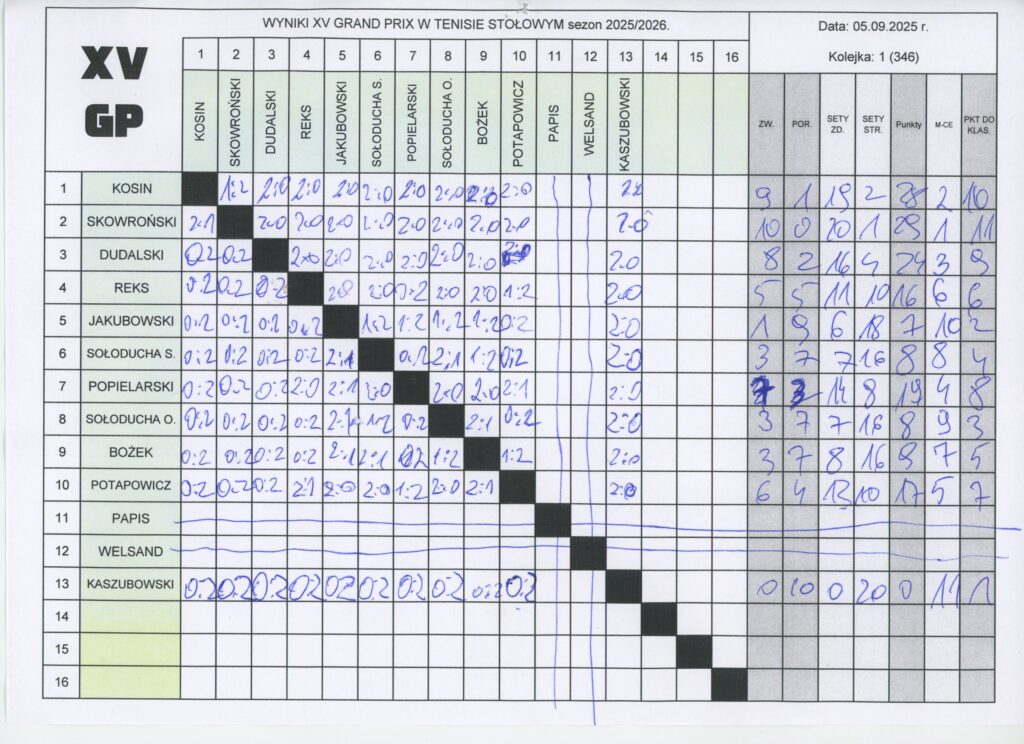 WYNIKI XV GRAND PRIX W TENISIE STOŁOWYM sezon 2025/2026.
Data: 05.09.2025 r.
Kolejka: 1 (346)
XV
GP
1 2 3 4 5 6 7 8 9 10 11 12 13 14 15 16
KOSIN SKOWROŃSKI DUDALSKI REKS JAKUBOWSKI SOŁODUCHA S. POPIELARSKI SOŁODUCHA O. BOŻEK POTAPOWICZ PAPIS WELSAND KASZUBOWSKI
ZW. POR. SETY ZD. SETY STR. Punkty M-CE PKT DO KLAS.
1 KOSIN 1:2 2:0 2:0 2:0 2:0 2:0 2:0 2:0 2:0 9 1 19 2 28 2 10
2 SKOWROŃSKI 2:1 2:0 2:0 2:0 2:0 2:0 2:0 2:0 2:0 2:0 10 0 20 1 29 1 11
3 DUDALSKI 0:2 0:2 2:0 2:0 2:0 2:0 2:0 2:0 2:0 2:0 8 2 16 4 24 3 9
4 REKS 0:2 0:2 0:2 2:0 2:0 0:2 2:0 2:0 1:2 2:0 5 5 11 10 16 6 6
5 JAKUBOWSKI 0:2 0:2 0:2 0:2 1:2 1:2 1:2 1:2 0:2 2:0 1 9 6 18 7 10 2
6 SOŁODUCHA S. 0:2 0:2 0:2 0:2 2:1 0:2 2:1 1:2 0:2 2:0 3 7 7 16 8 8 4
7 POPIELARSKI 0:2 0:2 0:2 2:0 2:1 2:0 2:0 2:0 2:1 2:0 7 3 14 8 19 4 8
8 SOŁODUCHA O. 0:2 0:2 0:2 0:2 2:1 1:2 0:2 2:1 0:2 2:0 3 7 7 16 8 9 3
9 BOŻEK 0:2 0:2 0:2 0:2 2:1 2:1 0:2 1:2 1:2 2:0 3 7 8 16 9 7 5
10 POTAPOWICZ 0:2 0:2 0:2 2:1 2:0 2:0 1:2 2:0 2:1 2:0 6 4 13 10 17 5 7
11 PAPIS
12 WELSAND
13 KASZUBOWSKI 0:2 0:2 0:2 0:2 0:2 0:2 0:2 0:2 0:2 0:2 0 10 0 20 0 11 1
14
15
16